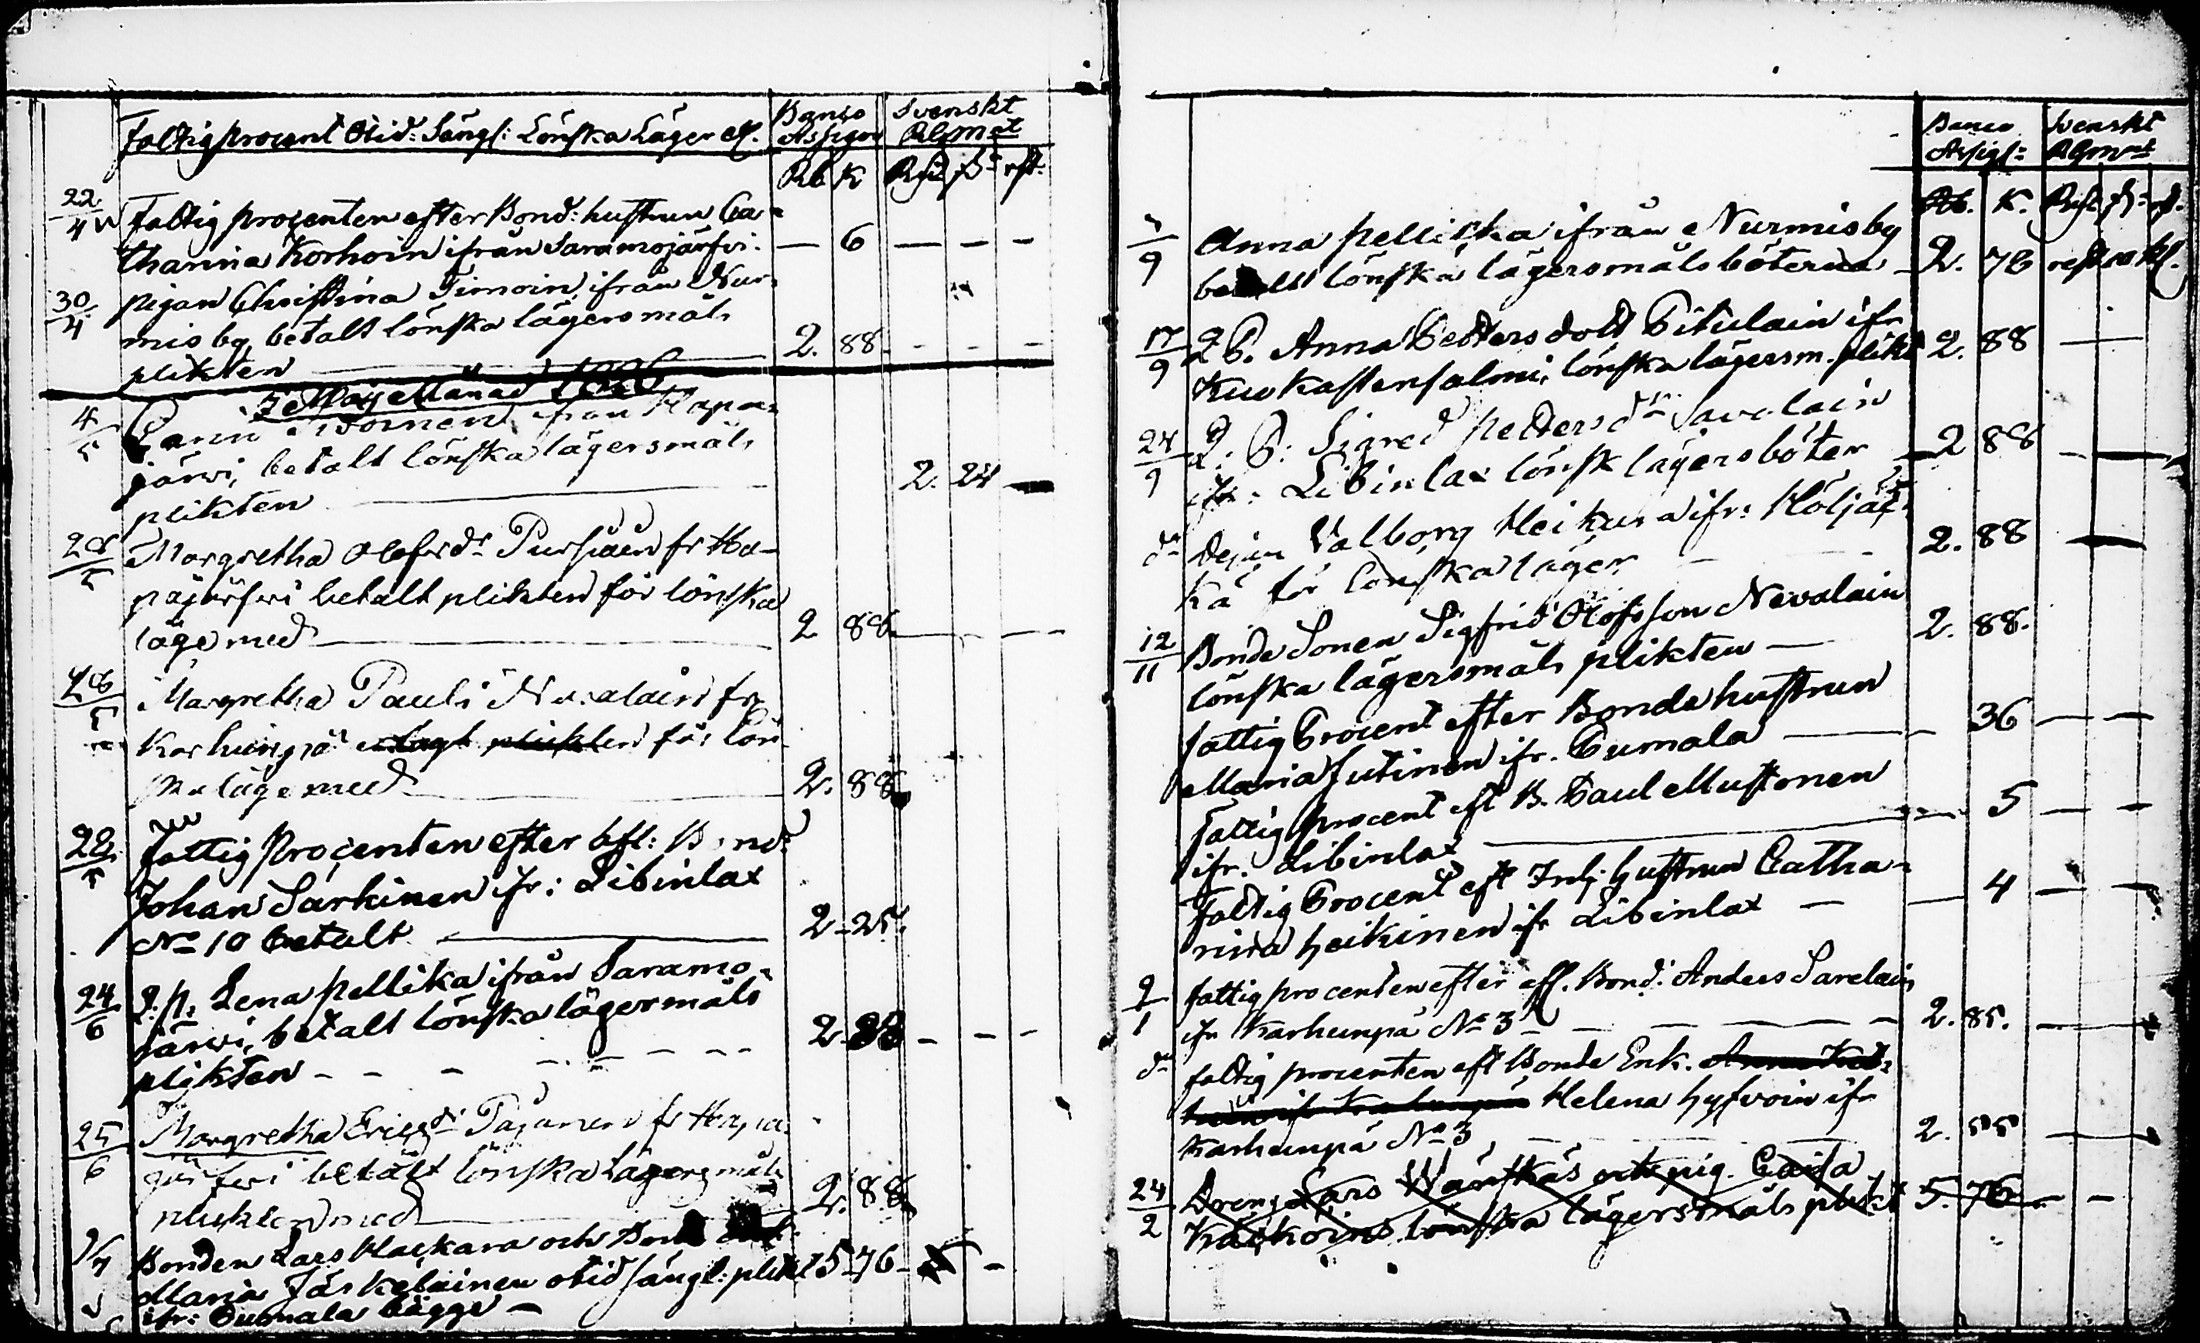 Fattigprocent Otid: Sängl: Lönska Läger etc.
Banco Assign
Svenskt Rgmt
Rb K
22/4 Fattig procenten efter Bond: hustrun Ca-
tharina Korhoin ifrån Saramojärfvi. — 6 — — —
30/4 pigan Christina Timoin ifrån Nur-
mis by, betalt lönska lägersmåls
plikten 2. 88 - - -
I Maij Månad 1826
4/5 Carin ifrån Hapa-
järvi, betalt lönska lägersmåls
plikten 2. 24 —
28/5 Margretha Olofsdr Pursiain fr Ha-
pajärfvi betalt plikten för lönska
läge med 2 88
28/5 Margretha Pauls Nevalain fr
Karhunpä erlagt plikten för lön
ska läge med 2. 88
28/5 Fattig Procenten efter afl: Bond:
Johan Sarkinen ifr: Libinlax
No 10 betalt 2 - 25.
24/6 Q. p. Lena Pellika ifrån Saramo-
järvi, betalt lönska lägersmåls
plikten - - - 2 88 - - -
25/6 Margretha Ericsdr Pajanen fr Hapa-
järfvi betalt lönska Lägersmåls
plikten med 2. 88
Bonden Lars Hackara och Bond
Maria Jäskeläinen otid sängl: plikt 5-76 -
ifr: Pumala bägge —
Banco Assigt:
Svenskt Rgmt
Rb. K.
/9 Anna Pellicka ifrån Nurmisby
betalt lönska lägersmåls böterna 2. 76
17/9 Q P. Anna Pettersdott Pitulain ifr
Kuokastensalmi, lönska lägersm. plikt 2. 88 —
24/9 Q: P: Sigred Petters dr Savolain
ifr: Libinlax lönsk lägersböter 2 88
do Valborg Heikura ifr: Höljäc-
kä för lönska läger 2. 88
12/11 Bonde Sonen Sigfrid Olofsson Nevalain
lönska lägersmåls plikten — 2. 88.
fattig Procent efter Bonde hustrun
Maria Sutinen ifr. Pumala — 36 — —
fattig procent eft B. Paul Mustonen
ifr. Libinlax 5 — —
Fattig Procent eft Inh: hustrun Catha-
rina Heikinen ifr Libinlax — 4 — —
9/1 fattig procenten efter afl. Bond: Anders Savelain
ifr Karhunpä No 3 2. 85.
do fattig procenten eft Bonde Enk.
Helena Hyfvoin ifr
Karhunpä No 3 2. 55
24/2 Dreng Lars Wänskäs och pig. Caisa
Käcköins lönska lägersmåls plikt 5. 76 - -